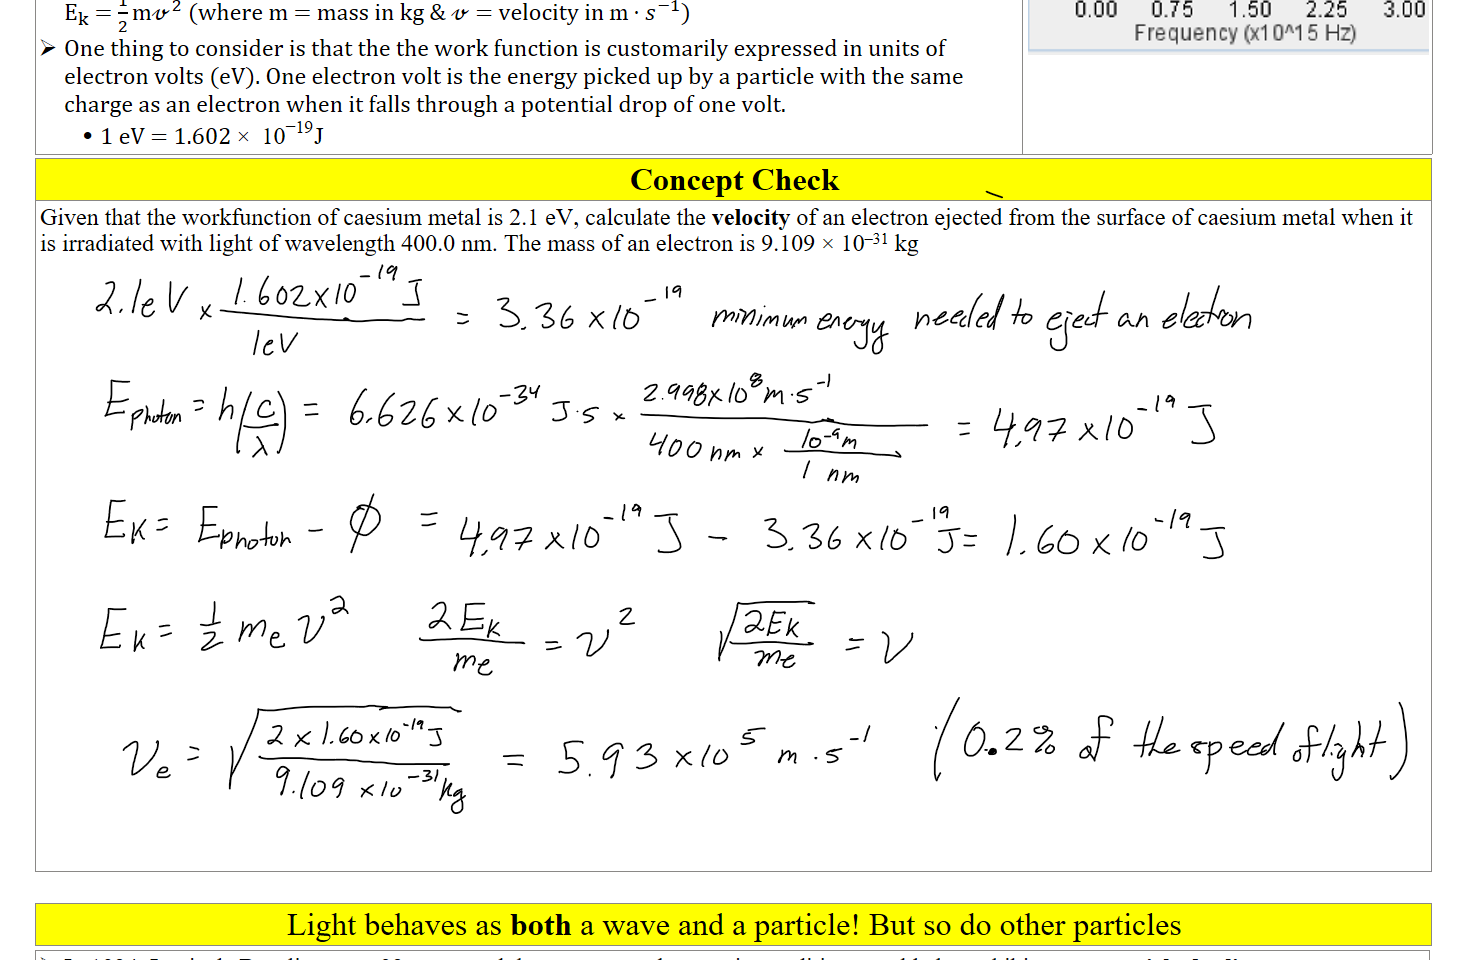 E_k = 1/2 mv² (where m = mass in kg & v = velocity in m · s⁻¹)
➤ One thing to consider is that the the work function is customarily expressed in units of
electron volts (eV). One electron volt is the energy picked up by a particle with the same
charge as an electron when it falls through a potential drop of one volt.
• 1 eV = 1.602 × 10⁻¹⁹J
0.00 0.75 1.50 2.25 3.00
Frequency (x10^15 Hz)
Concept Check
Given that the workfunction of caesium metal is 2.1 eV, calculate the velocity of an electron ejected from the surface of caesium metal when it
is irradiated with light of wavelength 400.0 nm. The mass of an electron is 9.109 × 10⁻³¹ kg
2.1eV × 1.602×10⁻¹⁹ J / 1eV = 3.36 ×10⁻¹⁹ minimum energy needed to eject an electron
E_photon = h(c/λ) = 6.626×10⁻³⁴ J·s × 2.998×10⁸ m·s⁻¹ / 400 nm × 10⁻⁹m / 1 nm = 4.97 ×10⁻¹⁹ J
E_K = E_photon − ϕ = 4.97 ×10⁻¹⁹ J − 3.36 ×10⁻¹⁹ J = 1.60 × 10⁻¹⁹ J
E_K = 1/2 m_e v² 2E_K / m_e = v² √(2E_K / m_e) = v
v_e = √(2 × 1.60×10⁻¹⁹ J / 9.109 ×10⁻³¹ kg) = 5.93 ×10⁵ m·s⁻¹ (0.2% of the speed of light)
Light behaves as both a wave and a particle! But so do other particles